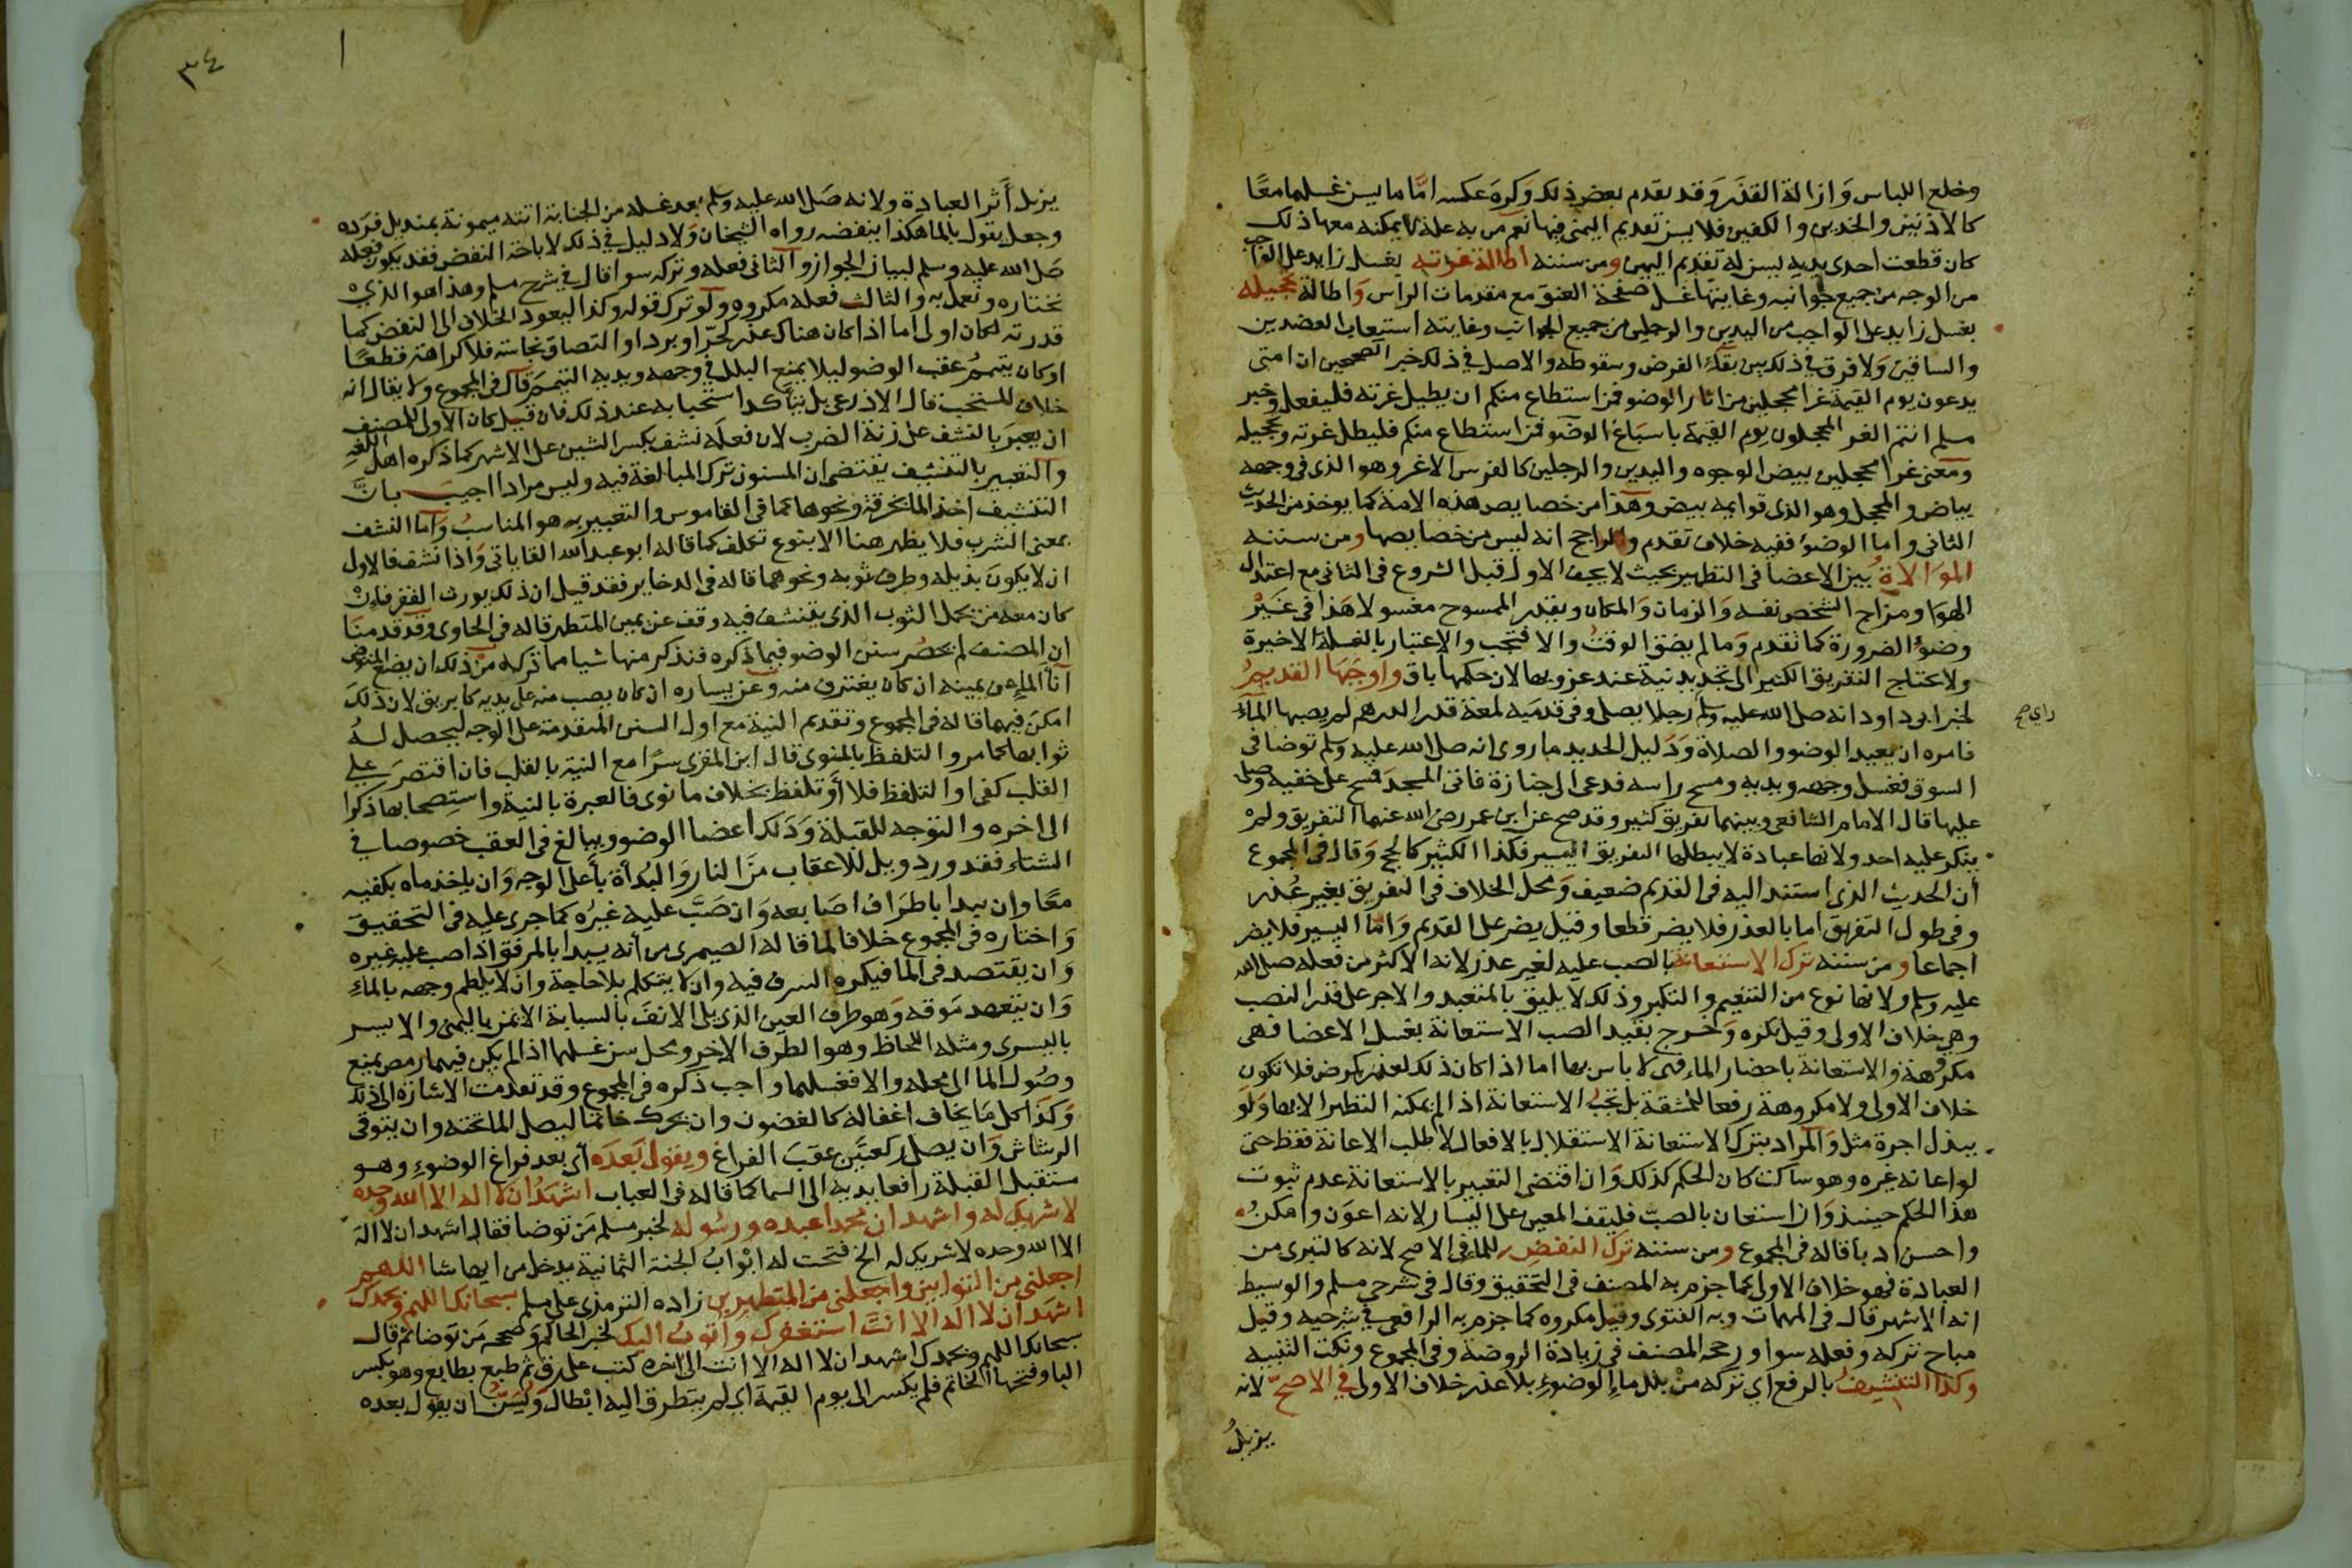 وخلع اللباس وَازالة القذَر وَقد يقدم بعض ذلك وَكره عكسه امّا ما يسن غسلهما معًا
كالاذنين والخدين والكفين فلا يسن تقديم اليمنى فيها نعم من به علة لا يمكنه معها ذلك
كان قطعت احدى يديه يسن له تقديم اليمين ومن سننه اطالة غرته بغسل زايد على الواجب
من الوجه من جميع جوانبه وغايتها غسل صفحة العنق مع مقدمات الراس وَاطالة تحجيله
بغسل زايد على الواجب من اليدين والرجلين من جميع الجوانب وغايته استيعاب العضدين
والساقين وَلا فرق في ذلك بين بقاء الفرض وسقوطه والاصل في ذلك خبر الصحيحين ان امتى
يدعون يوم القيمة غرا محجلين من اثار الوضو فمن استطاع منكم ان يطيل غرته فليفعل وخبر
مسلم انتم الغر المحجلون يوم القيمة باسباغ الوضو فمن استطاع منكم فليطل غرته وتحجيله
ومعنى غرا محجلين بيض الوجوه واليدين والرجلين كالفرس الاغر وهو الذى فى وجهه
بياض والمحجل وهو الذى قوايمه بيض وهذا من خصايص هذه الامة كما يوخذ من الحديث
الثانى واما الوضوُ ففيه خلاف تقدم والراجح انه ليس من خصايصها ومن سننه
الموَالاةُ بين الاعضا فى التطهير بحيث لا يجف الاول قبل الشروع فى الثانى مع اعتدال
الهوَا ومزاج الشخص نفسه وَالزمان وَالمكان ويقدر الممسوح مغسولا هَذا فى غَيْر
وضوُ الضرورة كما تقدم وَما لم يضق الوقتُ والا فتجب والاعتبار بالغسلة الاخيرة
ولا يحتاج التفريق الكثير الى تجديد نية عند عزوبها لان حكمها باق واوجَبَهَا القديمُ
لخبر ابى داود انه صلى الله عليه وسلم رجلا يصلى وفى قدمَيه لمعة قدر الدرهم لم يصبها الماءُ
راى صح
فامره ان يعيد الوضو والصلاة وَدَليل الجديد ما روى انه صلى الله عليه وسلم توضا فى
السوق فغسل وجهه ويديه ومسح راسه فدعى الى جنازة فاتى المسجد فمسح على خفيه وصلى
عليها قال الامام الشافعى وبينهما تفريق كثير وقد صح عن ابن عمر رضى الله عنهما التفريق ولم
ينكر عليه احد ولانها عبادة لا يبطلها التفريق اليسير فكذا الكثير كالحج وَقال فى المجموع
أن الحديث الذى استند اليه فى القديم ضعيف وَمحل الخلاف فى التفريق بغير عُذر
وفى طول التفريق اما بالعذر فلا يضر قطعا وقيل يضر على القديم وَامّا اليسير فلا يضر
اجماعا ومن سننه ترك الاستعانة بالصب عليه لغير عذر لانه الاكثر من فعله صلى الله
عليه وسلم ولانها نوع من التنعيم والتكبر وذلك لا يليق بالمتعبد والاجر على قدر النصب
وهى خلاف الاولى وقيل تكره وَخرج بقيد الصب الاستعانة بغسل الاعضا فهى
مكروهة والاستعانة باحضار الماء فهى لا باس بها اما اذا كان ذلك لعذر كمرض فلا تكون
خلاف الاولى ولا مكروهة رفعا للمشقة بل تجبُ الاستعانة اذا لم يمكنه التطهر الا بها وَلو
ببذل اجرة مثل وَالمراد بترك الاستعانة الاستقلال بالافعال لا طلب الاعانة فقط حتى
لو اعانه غيره وهو ساكت كان الحكم كذلك وَان اقتضى التعبير بالاستعانة عدم ثبوت
هذا الحكم حينئذ وَاذا استعان بالصبّ فليقف المعين على اليسار لانه اعوَن وامكنُ
واحسن ادبا قاله فى المجموع ومن سننه ترك النفض للماء فى الاصح لانه كالتبرى من
العبادة فهو خلاف الاولى كما جزم به المصنف فى التحقيق وقال فى شرحى مسلم والوسيط
انه الاشهر قال فى المهمات وبه الفتوى وقيل مكروه كما جزم به الرافعى فى شرحيه وقيل
مباح تركه وفعله سوا ورجحه المصنف فى زيادة الروضة وفى المجموع ونكت التنبيه
وَكذا التنشيفُ بالرفع اي تركه منْ بلل ماءِ الوضوءِ بلا عذر خلاف الاولى في الاصحّ لانه
يزيلُ
٣٤
يزيل أَثر العبادة ولانه صَلى الله عليه وسلم بعد غسله من الجنابة اتته ميمونة بمنديل فردّه
وجعل يقول بالما هكذا ينفضه رواه الشيخان وَلا دليل فى ذلك لاباحة النفض فقد يكون فعله
صَلى الله عليه وسلم لبيان الجواز والثانى فعله وتركه سوا قال فى شرح مسلم وهذا هو الذي
نختاره ونعمل به والثالث فعله مكروه ولو ترك قوله وكذا ليعود الخلاف الى النفض كما
قدرته لكان اولى اما اذا كان هناك عذر لحرّ او برد او التصاق نجاسة فلا كراهة قطعًا
او كان يتيممُ عقب الوضو ليلا يمنع البلل فى وجهه ويديه التيممَ قال فى المجموع ولا يقال انه
خلاف المستحب قال الاذرعى بل يتأكد استحبابه عند ذلك فان قيل كان الاولى للمصنف
ان يعبر بالنشف على زنة الضرب لان فعلَه نشف بكسر الشين على الاشهر كما ذكره اهل اللغة
والتعبير بالتنشيف يقتضى ان المسنون ترك المبالغة فيه وليس مرادا اجيبَ بانَّ
التنشيف اخذ الما بخرقة ونحوها كما فى القاموس والتعبير به هو المناسبُ وَامّا النشف
بمعنى الشرب فلا يظهر هنا الا بنوع تكلف كما قاله ابو عبد الله القاياتى وَاذا نشف فالاول
ان لا يكونَ بذيله وطرف ثوبه ونحوهما قاله فى الدخاير فقد قيل ان ذلك يورث الفقر فانْ
كان معه من يحمل الثوب الذى يتنشف فيه وقف عن يمين المتطهر قاله فى الحاوى وقد قدمنَا
ان المصنف لم يحصُر سنن الوضو فيما ذكره فنذكر منها شيا مما تركه منْ ذلك ان يضع المتوضى
اناَ الماء عن يمينه ان كان يغترف منه وعن يساره ان كان يصب منه على يديه كابريق لان ذلكَ
امكنَ فيهما قاله فى المجموع وتقديم النية مع اول السنن المتقدمة على الوجه ليحصل لهُ
ثوابها كما مر والتلفظ بالمنوى قال ابن المقرى سرًا مع النية بالقلب فان اقتصرَ علي
القلب كفى او التلفظ فلا أَو تلفظ بخلاف ما نوى فالعبرة بالنية واستصحابها ذكرا
الى اخره والتوجه للقبلة وَدَلك اعضا الوضو ويبالغ فى العقب خصوصا في
الشتاء فقد ورد ويل للاعقاب منَ النار وَالبُدأة بأَعلى الوجه وَان ياخذ ماه بكفيه
معًا وان يبدا باطرَاف اصَابعه وَان صَبَّ عليه غيرُه كما جرى عليه فى التحقيقَ
وَاختاره فى المجموع خلافا لما قاله الصيمرى من أنه يبدا بالمرفق اذا صب عليه غيره
وَان يقتصد فى الما فيكره السرف فيه وان لا يتكلم بلا حاجة وان لا يلطم وجهه بالماءِ
وَان يتعهد موقه وَهو طرف العين الذى يلى الانفَ بالسبابة الايمن باليمنى والايسر
باليسرى ومثله اللحاظ وهو الطرف الاخر ومحل سن غسلهما اذا لم يكن فيهما رمص يمنع
وصُول الما الى محله والا فغسلهما واجب ذكره فى المجموع وقد تقدمت الاشارة الى ذلك
وَكذا كل مَا يخاف اغفاله كالغضون وان يحرك خاتما ليصل الما تحته وان يتوقى
الرشاش وَان يصلى ركعتَين عقبَ الفراغ ويقول بَعدَه أى بعد فراغ الوضوءِ وهو
مستقبل القبلة رافعا يديه الى السما كما قاله فى العباب اشهَدُ ان لا اله الا الله وحده
لا شريك له واشهد ان محمدا عبده ورسوله لخبر مسلم مَن توضا فقال اشهد ان لا اله
الا الله وحده لا شريك له الخ فتحت له ابْوابُ الجنة الثمانية يدخل من ايها شا اللهم
اجعلنى من التوابين واجعلنى من المتطهرين زاده الترمذى على مسلم سبحانك اللهم وبحمدك
اشهَد ان لا اله الا انتَ استغفرك وأتوبُ اليك لخبر الحاكم وَصححه مَن توَضا ثم قال
سبحانك اللهم وبحمدك اشهد ان لا اله الا انت الى اخره كتب على رق ثم طبع بطابع وهو بكسر
البا وفتحها الخاتم فلم يكسر الى يوم القيمة اي لم يتطرق اليه ابْطال وَيُسَنُّ ان يقول بعده